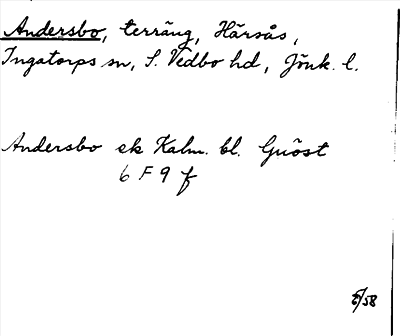 Andersbo, terräng, Härsås,
Ingatorps sn, S. Vedbo hd, Jönk. l.
Andersbo ek Kalm. bl. Gnöst
6 F 9 f
5/58